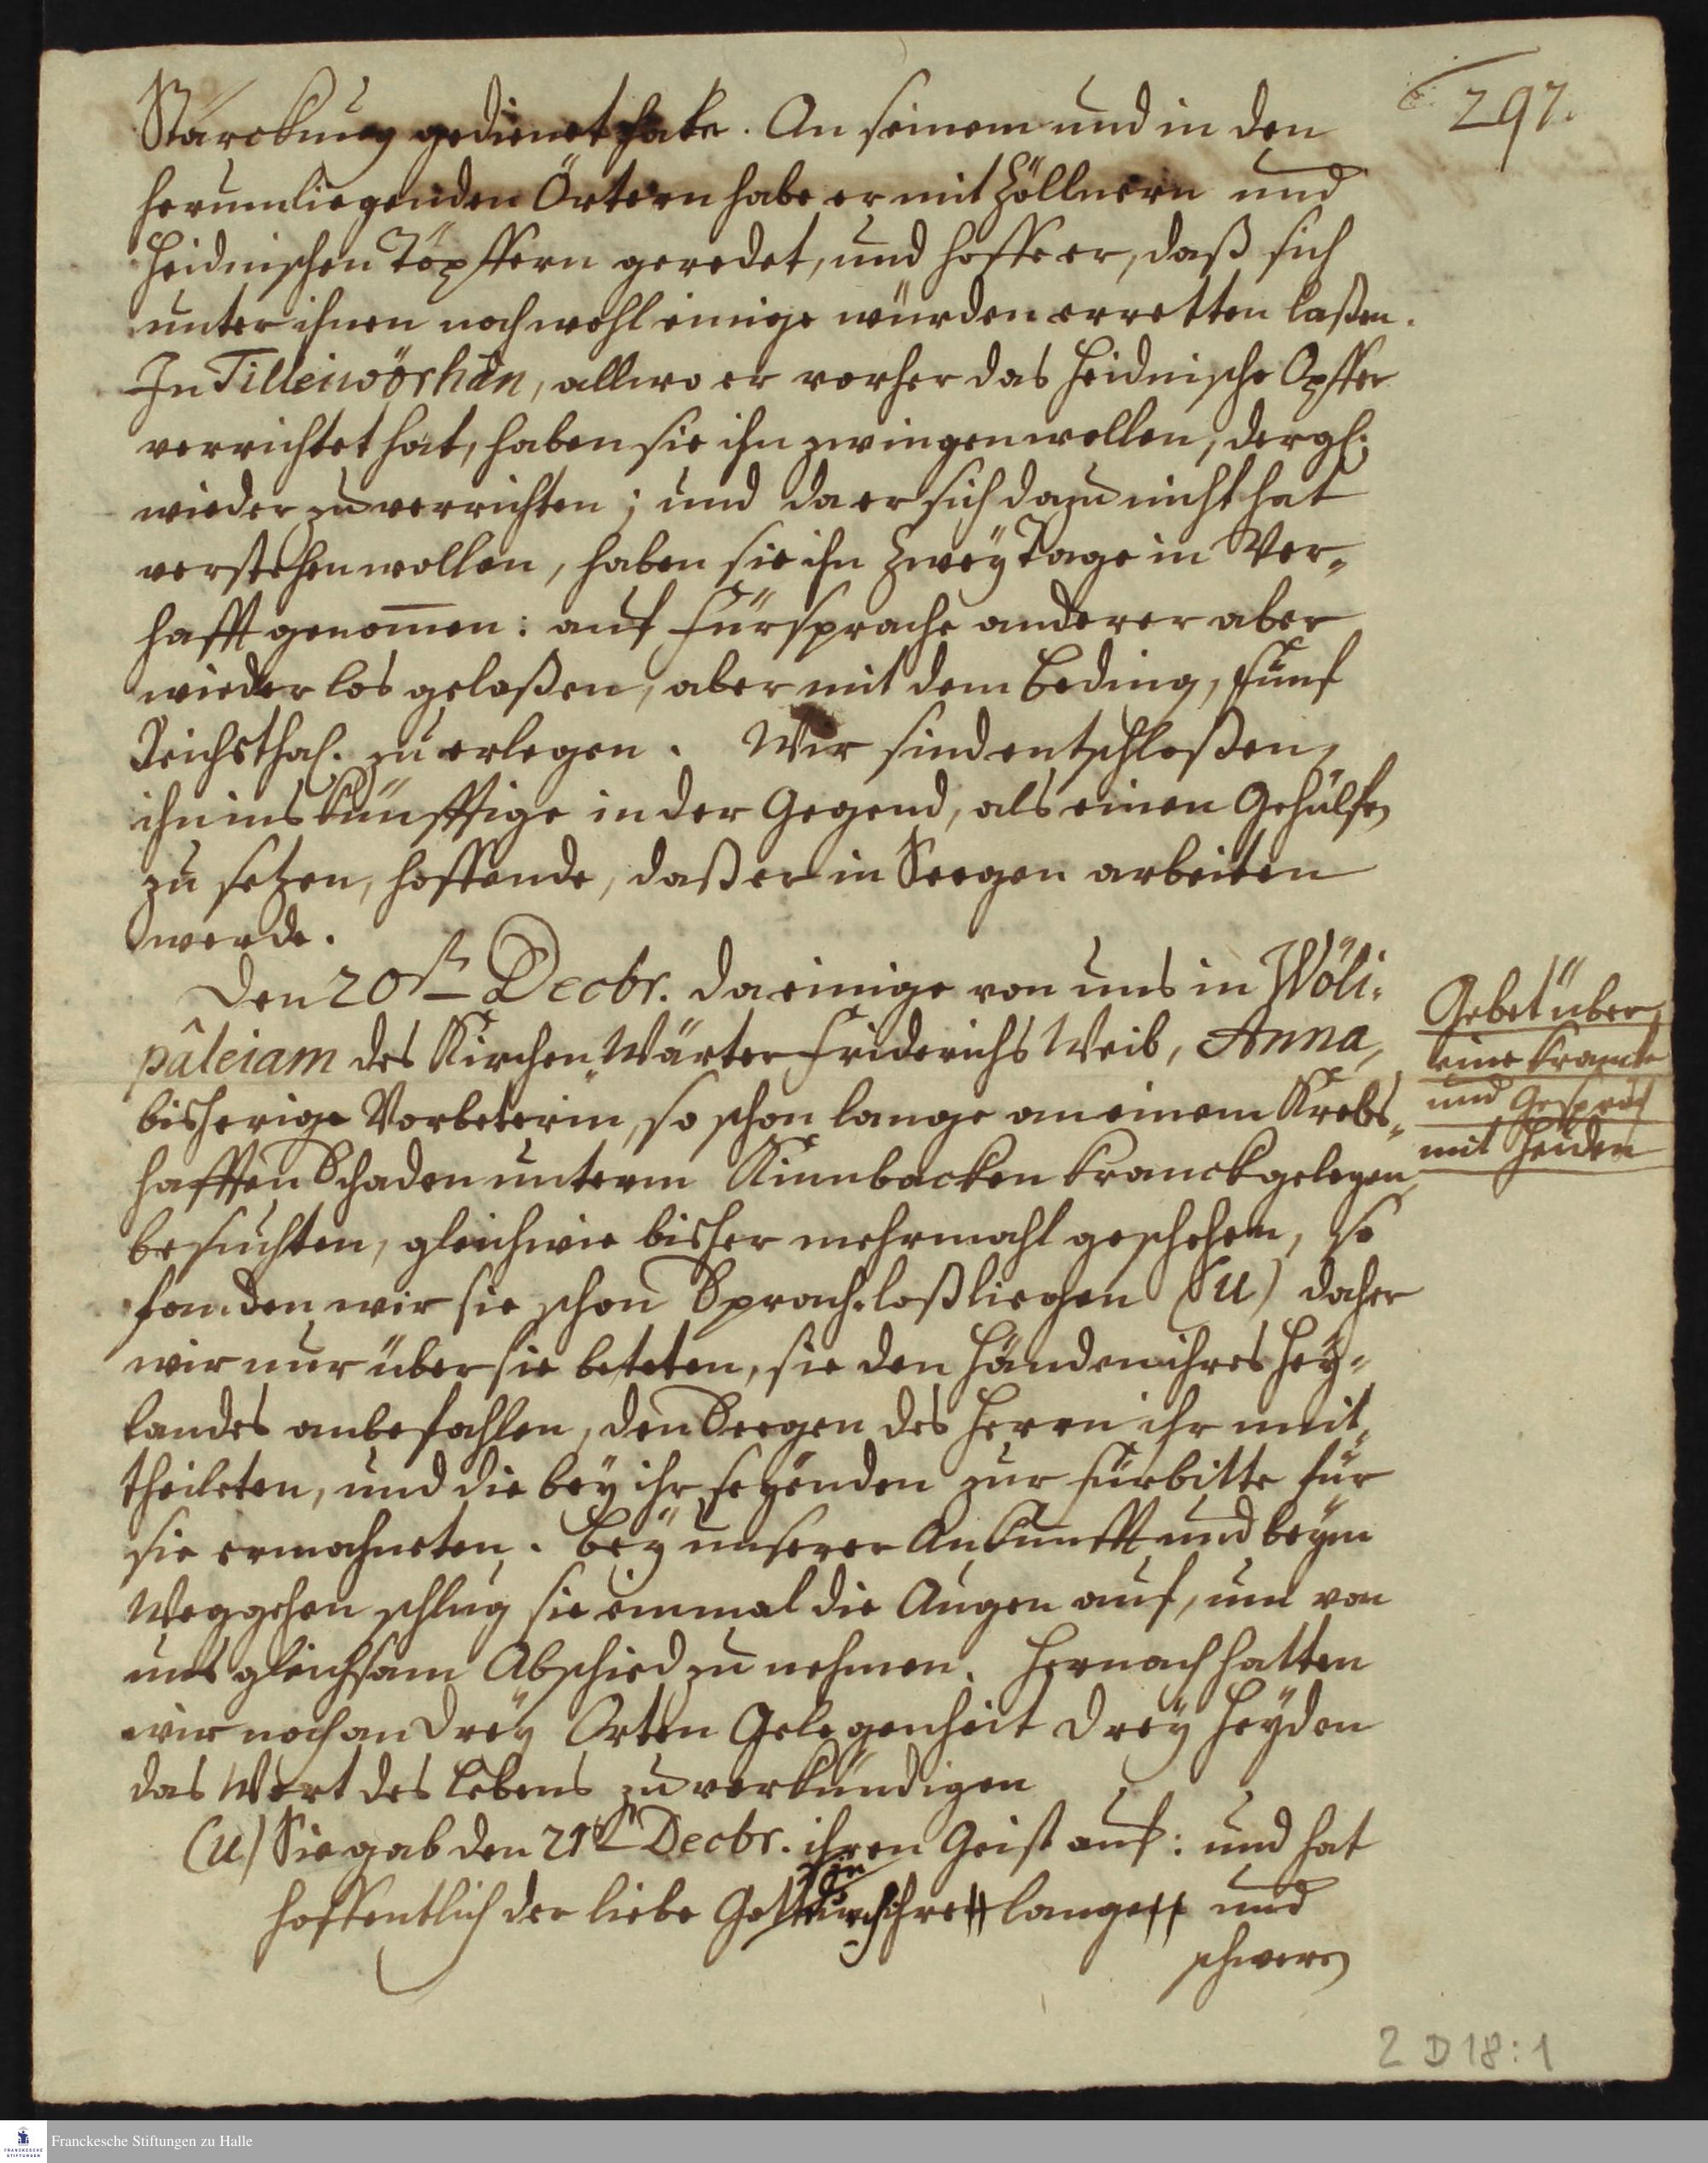 297.
Stärckung gedienet habe. An seinem und in den
herumliegenden Örtern habe er mit Zöllnern und
Heidnischen Töpffern geredet, und hoffe er, daß sich
unter ihnen noch wohl einige würden erretten laßen.
In Tilleiwörhån, allwo er vorher das Heidnische Opffer
verrichtet hat, haben sie ihn zwingen wollen, dergl.
wieder zu verrichten; und da er sich dazu nicht hat
verstehen wollen, haben sie ihn zwey Tage in Ver-
hafft genom̅en: auf Fürsprache anderer aber
wieder los gelaßen, aber mit dem Beding, fünf
Reichsthal. zu erlegen. Wir sind entschloßen,
ihn ins künfftige in der Gegend, als einen Gehülfen
zu setzen, hoffende, daß er in Seegen arbeiten
werde.
Den 20st Decbr. da einige von uns in Wöli-
pâleiam des Kirchen-Wärter Friderichs Weib, Anna,
bisherige Vorbeterin, so schon lange an einem Krebs-
hafften Schaden unterm Kinnbacken kranck gelegen,
besuchten, gleichwie bisher mehrmahl geschehen, so
fanden wir sie schon Sprach-loß liegen (u) daher
wir nur über sie beteten, sie den Händen ihres Hey-
landes anbefahlen, den Seegen des Herrn ihr mit-
theileten, und die bey ihr seyenden zur Fürbitte für
sie ermahneten. Bey unserer Ankunfft und beym
Weggehen schlug sie einmal die Augen auf, um von
uns gleichsam Abschied zu nehmen. Hernach hatten
wir noch an drey Orten Gelegenheit drey Heyden
das Wort des Lebens zu verkündigen
Gebet über
eine Krancke
und Gespräch
mit Heiden
(u) Sie gab den 21st Decbr. ihren Geist auf: und hat
hoffentlich der liebe Gott sie durch ihre lange und
schwere
2 D 18:1
Franckesche Stiftungen zu Halle
FRANCKESCHE
STIFTUNGEN